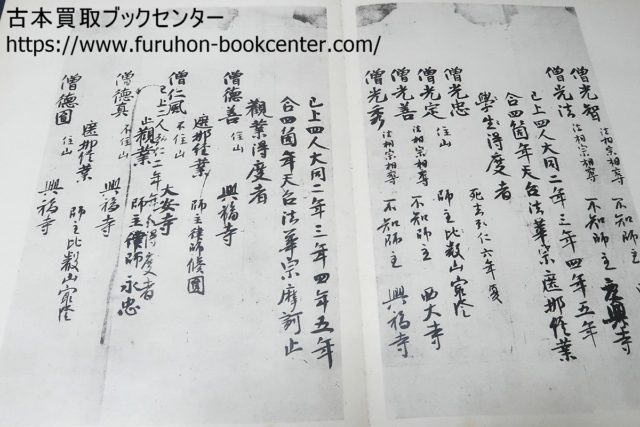 古本買取ブックセンター
https://www.furuhon-bookcenter.com/
僧光智 法相宗相奪 不知師主
僧光法 法相宗相奪 不知師主 元興寺
已上四人大同二年三年四年五年
合四箇年天台法華宗遮那経業
學生得度者
僧光忠 住山 師主比叡山最澄
死去弘仁六年夏
僧光定 住山 師主比叡山最澄
僧光善 法相宗相奪 不知師主 西大寺
僧光秀 法相宗相奪 不知師主 興福寺
已上四人大同二年三年四年五年
合四箇年天台法華宗摩訶止
觀業得度者
僧德善 住山 興福寺
遮那経業 師主律師修圓
僧仁風 不住山 大安寺
止觀業 師主律師永忠
已上二人弘仁二年年分得度者
僧德真 不住山 興福寺
僧德圓 住山 興福寺
遮那経業 師主比叡山最澄